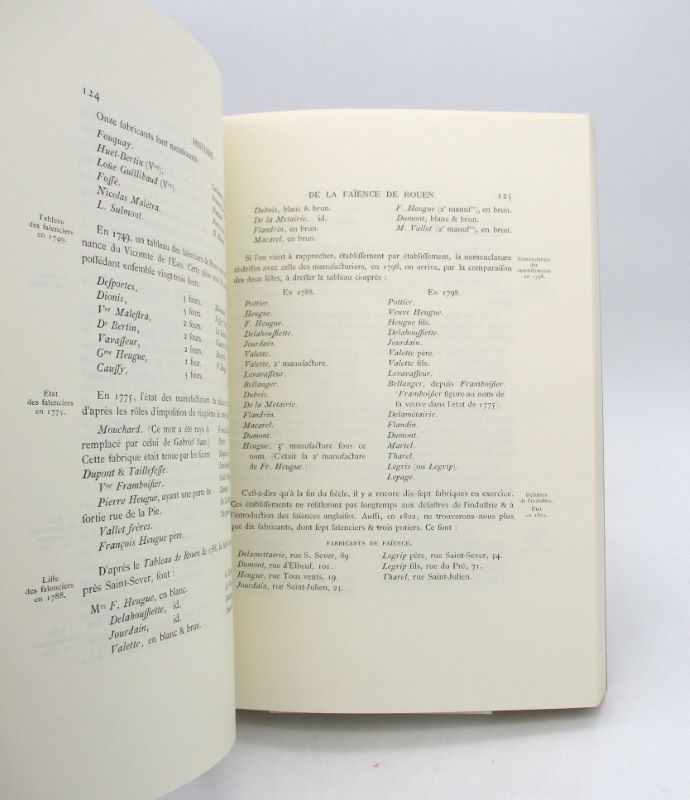 124
Onze fabricants sont mentionnés :
Fouquay.
Huet-Bertin (Vve).
Loüe Guillibaud (Vve).
Fossé.
Nicolas Malétra.
L. Sulmont.
Tableau
des faïenciers
en 1749.
En 1749, un tableau des faïenciers de
nance du Vicomte de l'Eau. Cette pièce
possédant ensemble vingt-trois fours.
Desportes, 3 fours.
Dionis, 5 fours.
Vve Malestra, 2 fours.
Dr Bertin, 2 fours.
Vavasseur, 2 fours.
Gme Heugue, 1 four.
Caussy, 3 fours.
État
des faïenciers
en 1775.
En 1775, l'état des manufacturiers de
d'après les rôles d'imposition du vingtième
Mouchard. (Ce mot a été rayé &
remplacé par celui de Gabriel Sass.)
Cette fabrique était tenue par les sieurs
Dupont & Taillefesse.
Vve Framboisier.
Pierre Heugue, ayant une porte de
sortie rue de la Pie.
Vallet frères.
François Heugue père.
Liste
des faïenciers
en 1788.
D'après le Tableau de Rouen de 1788,
près Saint-Sever, sont :
Mrs F. Heugue, en blanc.
Delahoussiette, id.
Jourdain, id.
Valette, en blanc & brun.
DE LA FAÏENCE DE ROUEN. 125
Dubois, blanc & brun. F. Heugue (2e manufre), en brun.
De la Metairie, id. Dumont, blanc & brun.
Flandrin, en brun. M. Vallet (2e manufre), en brun.
Macarel, en brun.
Si l'on vient à rapprocher, établissement par établissement, la nomenclature
ci-dessus avec celle des manufacturiers, en 1798, on arrive, par la comparaison
des deux listes, à dresser le tableau ci-après :
Nomenclature
des
établissements
en 1798.
EN 1788. EN 1798.
Pottier. Pottier.
Heugue. Veuve Heugue.
F. Heugue. Heugue fils.
Delahoussiette. Delahoussiette.
Jourdain. Jourdain.
Valette. Valette père.
Valette, 2e manufacture. Valette fils.
Levavasseur. Levavasseur.
Bellanger. Bellanger, depuis Framboisier.
Dubois. (Framboisier figure au nom de
De la Metairie. sa veuve dans l'état de 1775).
Flandrin. Delamétairie.
Macarel. Flandin.
Dumont. Dumont.
Heugue, 3e manufacture sous ce Martel.
nom. (C'était la 2e manufacture Tharel.
de Fr. Heugue.) Legris (ou Legrip).
Lepage.
C'est-à-dire qu'à la fin du siècle, il y a encore dix-sept fabriques en exercice.
Ces établissements ne résisteront pas longtemps aux désastres de l'industrie & à
l'introduction des faïences anglaises. Aussi, en 1802, ne trouverons-nous plus
que dix fabricants, dont sept faïenciers & trois potiers. Ce sont :
Désastres
de l'industrie.
État
en 1802.
FABRICANTS DE FAÏENCE.
Delamettairie, rue S. Sever, 89. Legrip père, rue Saint-Sever, 54.
Dumont, rue d'Elbeuf, 101. Legrip fils, rue du Pré, 71.
Heugue, rue Tous vents, 19. Tharel, rue Saint-Julien.
Jourdain, rue Saint-Julien, 23.